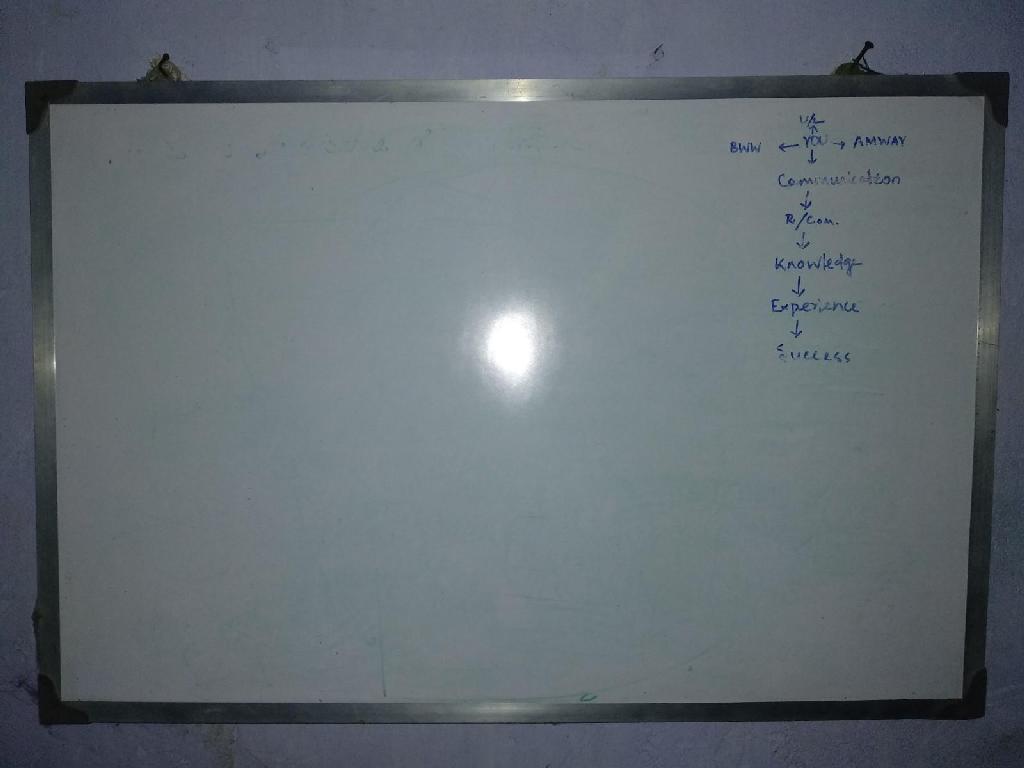 U/L
BWW ← YOU → AMWAY
Communication
R/Com.
Knowledge
Experience
Success